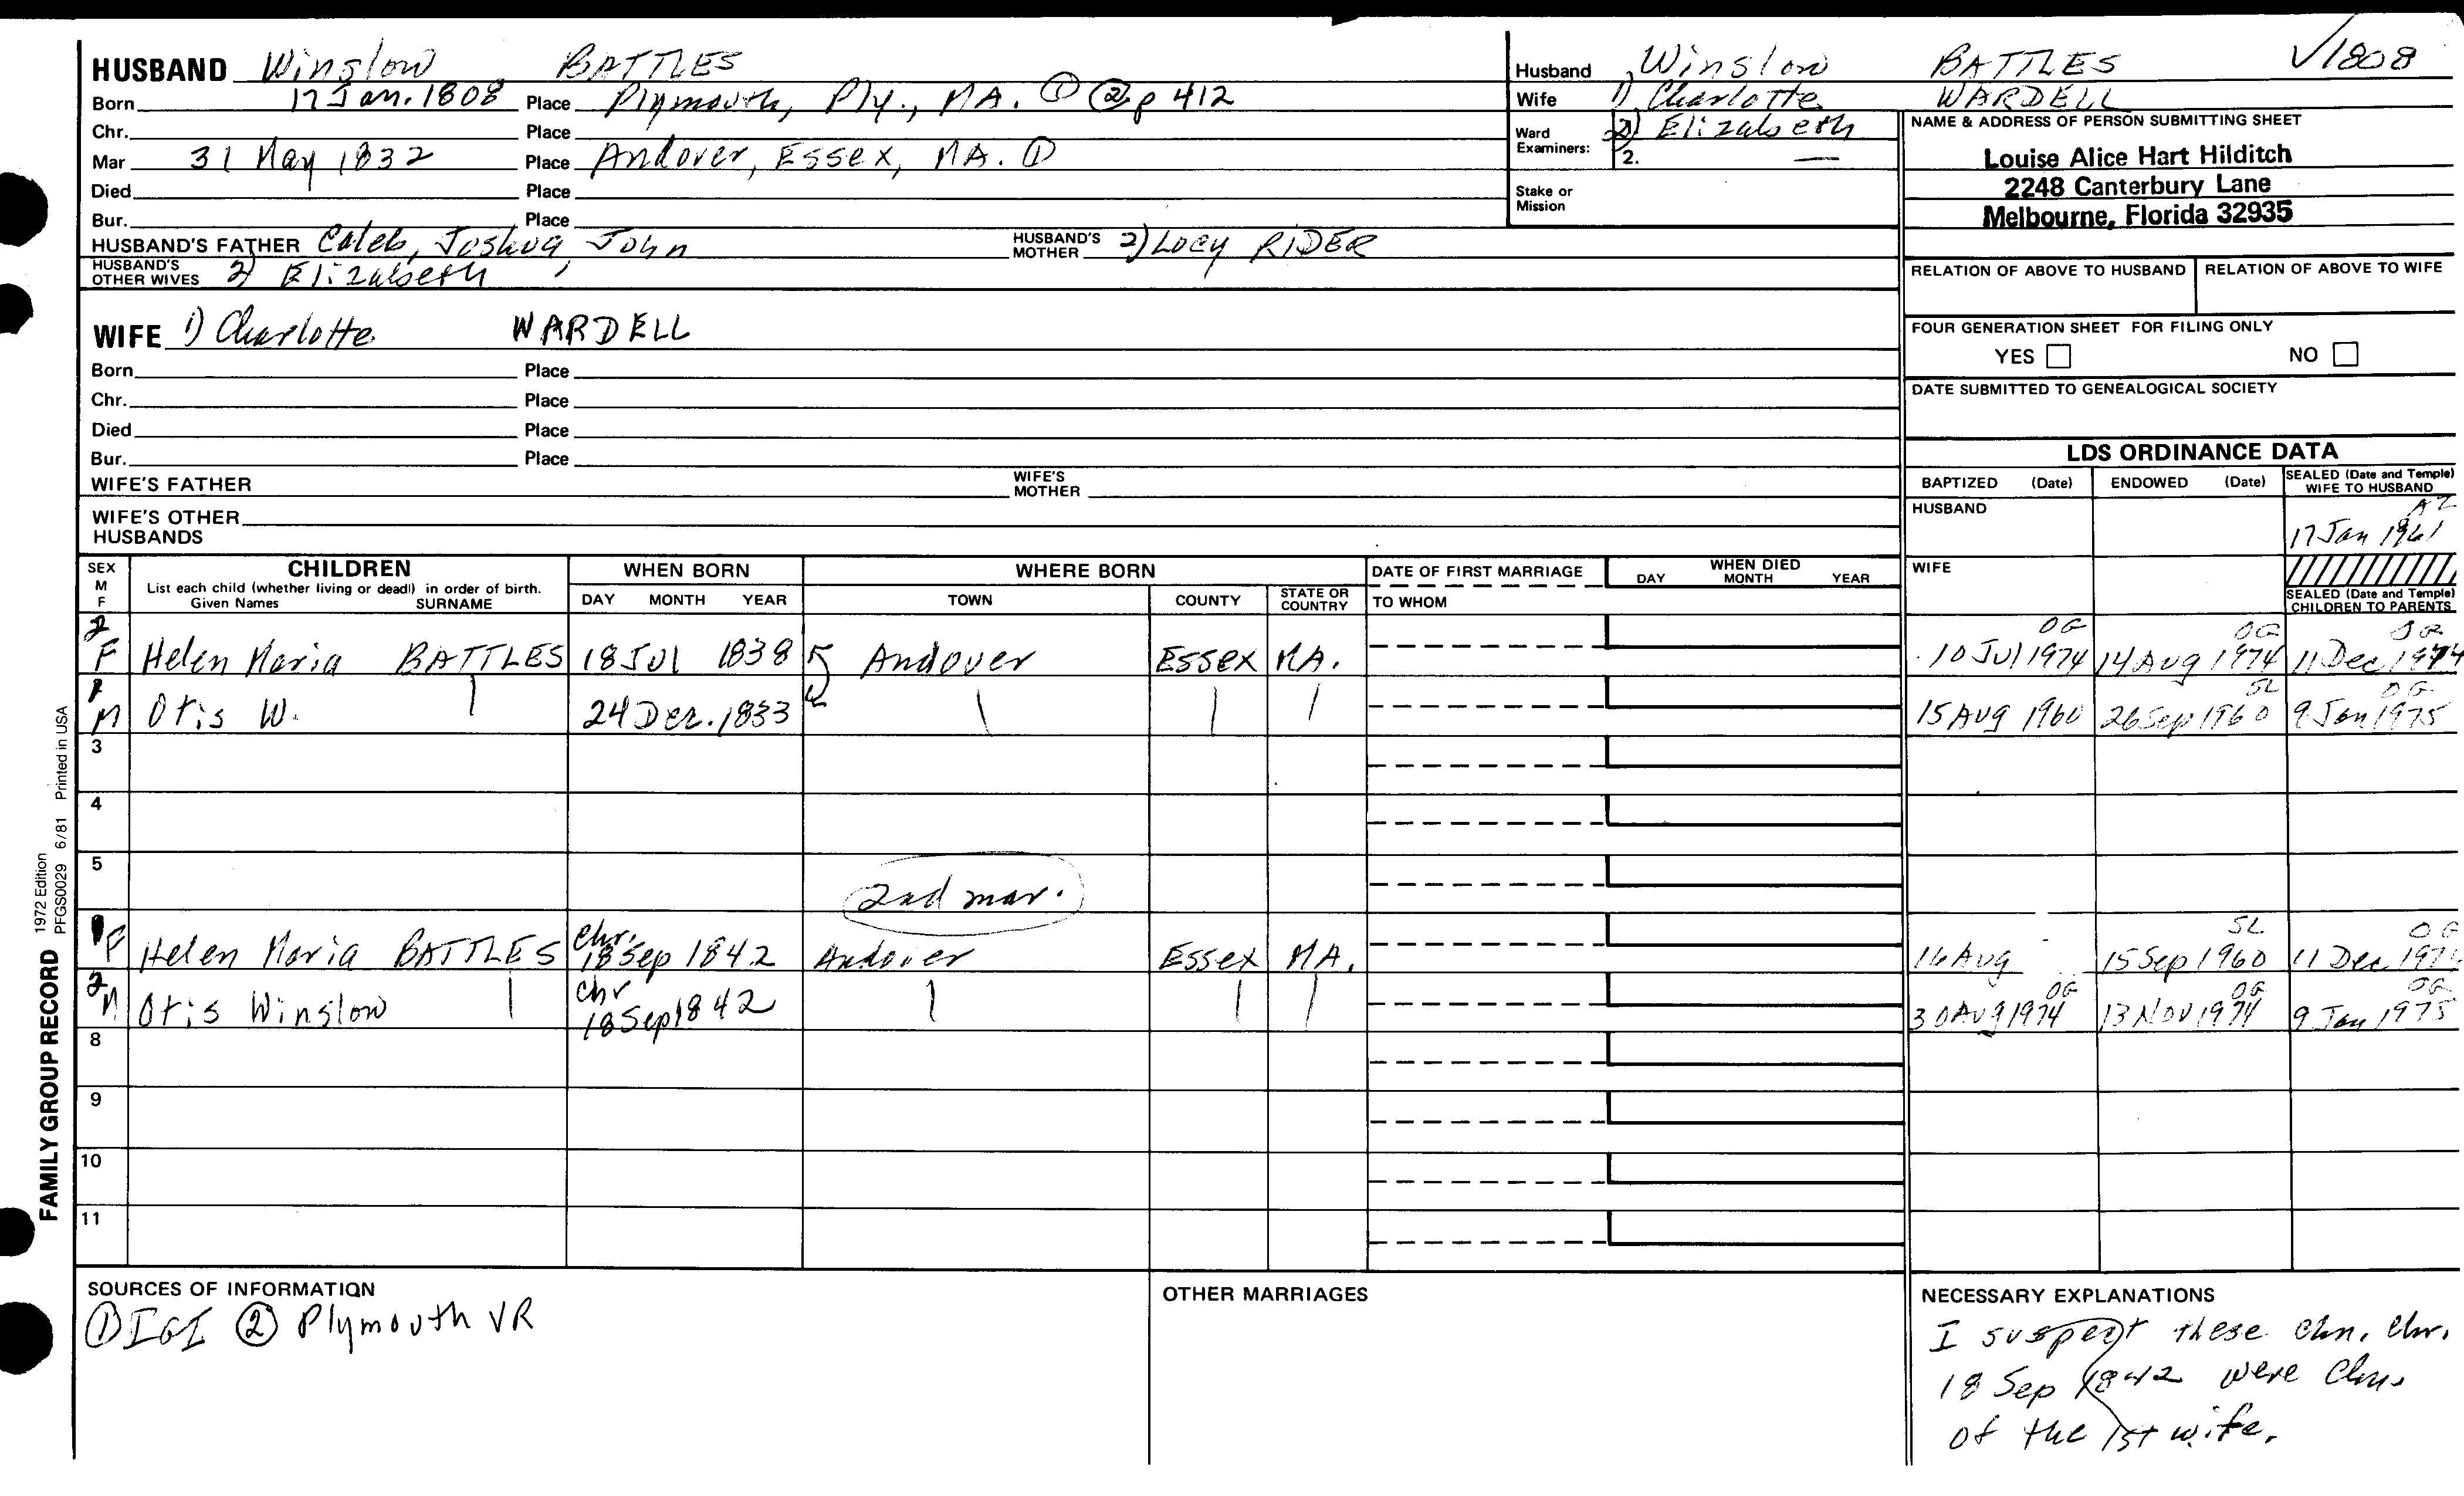 HUSBAND Winslow BATTLES
Born 17 Jan. 1808 Place Plymouth, Ply., MA. ① ② p 412
Chr. Place
Mar 31 May 1832 Place Andover, Essex, MA. ①
Died Place
Bur. Place
HUSBAND'S FATHER Caleb, Joshua, John HUSBAND'S MOTHER 2) Lucy RIDER
HUSBAND'S OTHER WIVES 2) Elizabeth
Husband Winslow BATTLES √1808
Wife 1) Charlotte WARDELL
Ward Examiners: 2) Elizabeth
2. —
Stake or Mission
NAME & ADDRESS OF PERSON SUBMITTING SHEET
Louise Alice Hart Hilditch
2248 Canterbury Lane
Melbourne, Florida 32935
RELATION OF ABOVE TO HUSBAND RELATION OF ABOVE TO WIFE
FOUR GENERATION SHEET FOR FILING ONLY
YES NO
DATE SUBMITTED TO GENEALOGICAL SOCIETY
WIFE 1) Charlotte WARDELL
Born Place
Chr. Place
Died Place
Bur. Place
WIFE'S FATHER WIFE'S MOTHER
WIFE'S OTHER HUSBANDS
LDS ORDINANCE DATA
BAPTIZED (Date) ENDOWED (Date) SEALED (Date and Temple) WIFE TO HUSBAND
HUSBAND AZ
17 Jan 1961
WIFE
SEALED (Date and Temple) CHILDREN TO PARENTS
SEX M F CHILDREN WHEN BORN WHERE BORN DATE OF FIRST MARRIAGE WHEN DIED
List each child (whether living or dead) in order of birth.
Given Names SURNAME DAY MONTH YEAR TOWN COUNTY STATE OR COUNTRY TO WHOM DAY MONTH YEAR
2 OG OG OG
F Helen Maria BATTLES 18 Jul 1838 Andover Essex MA. 10 Jul 1974 14 Aug 1974 11 Dec 1974
1 SL OG
M Otis W. 24 Dec. 1833 15 Aug 1960 26 Sep 1960 9 Jan 1975
3
4
5
2nd mar.
1 chr. SL OG
F Helen Maria BATTLES 18 Sep 1842 Andover Essex MA. 16 Aug 15 Sep 1960 11 Dec 1974
2 chr OG OG OG
M Otis Winslow 18 Sep 1842 30 Aug 1974 13 Nov 1974 9 Jan 1975
8
9
10
11
FAMILY GROUP RECORD 1972 Edition
PFGS0029 6/81 Printed in USA
SOURCES OF INFORMATION
① IGI ② Plymouth VR
OTHER MARRIAGES
NECESSARY EXPLANATIONS
I suspect these chn. chr.
18 Sep 1842 were chn.
of the 1st wife.